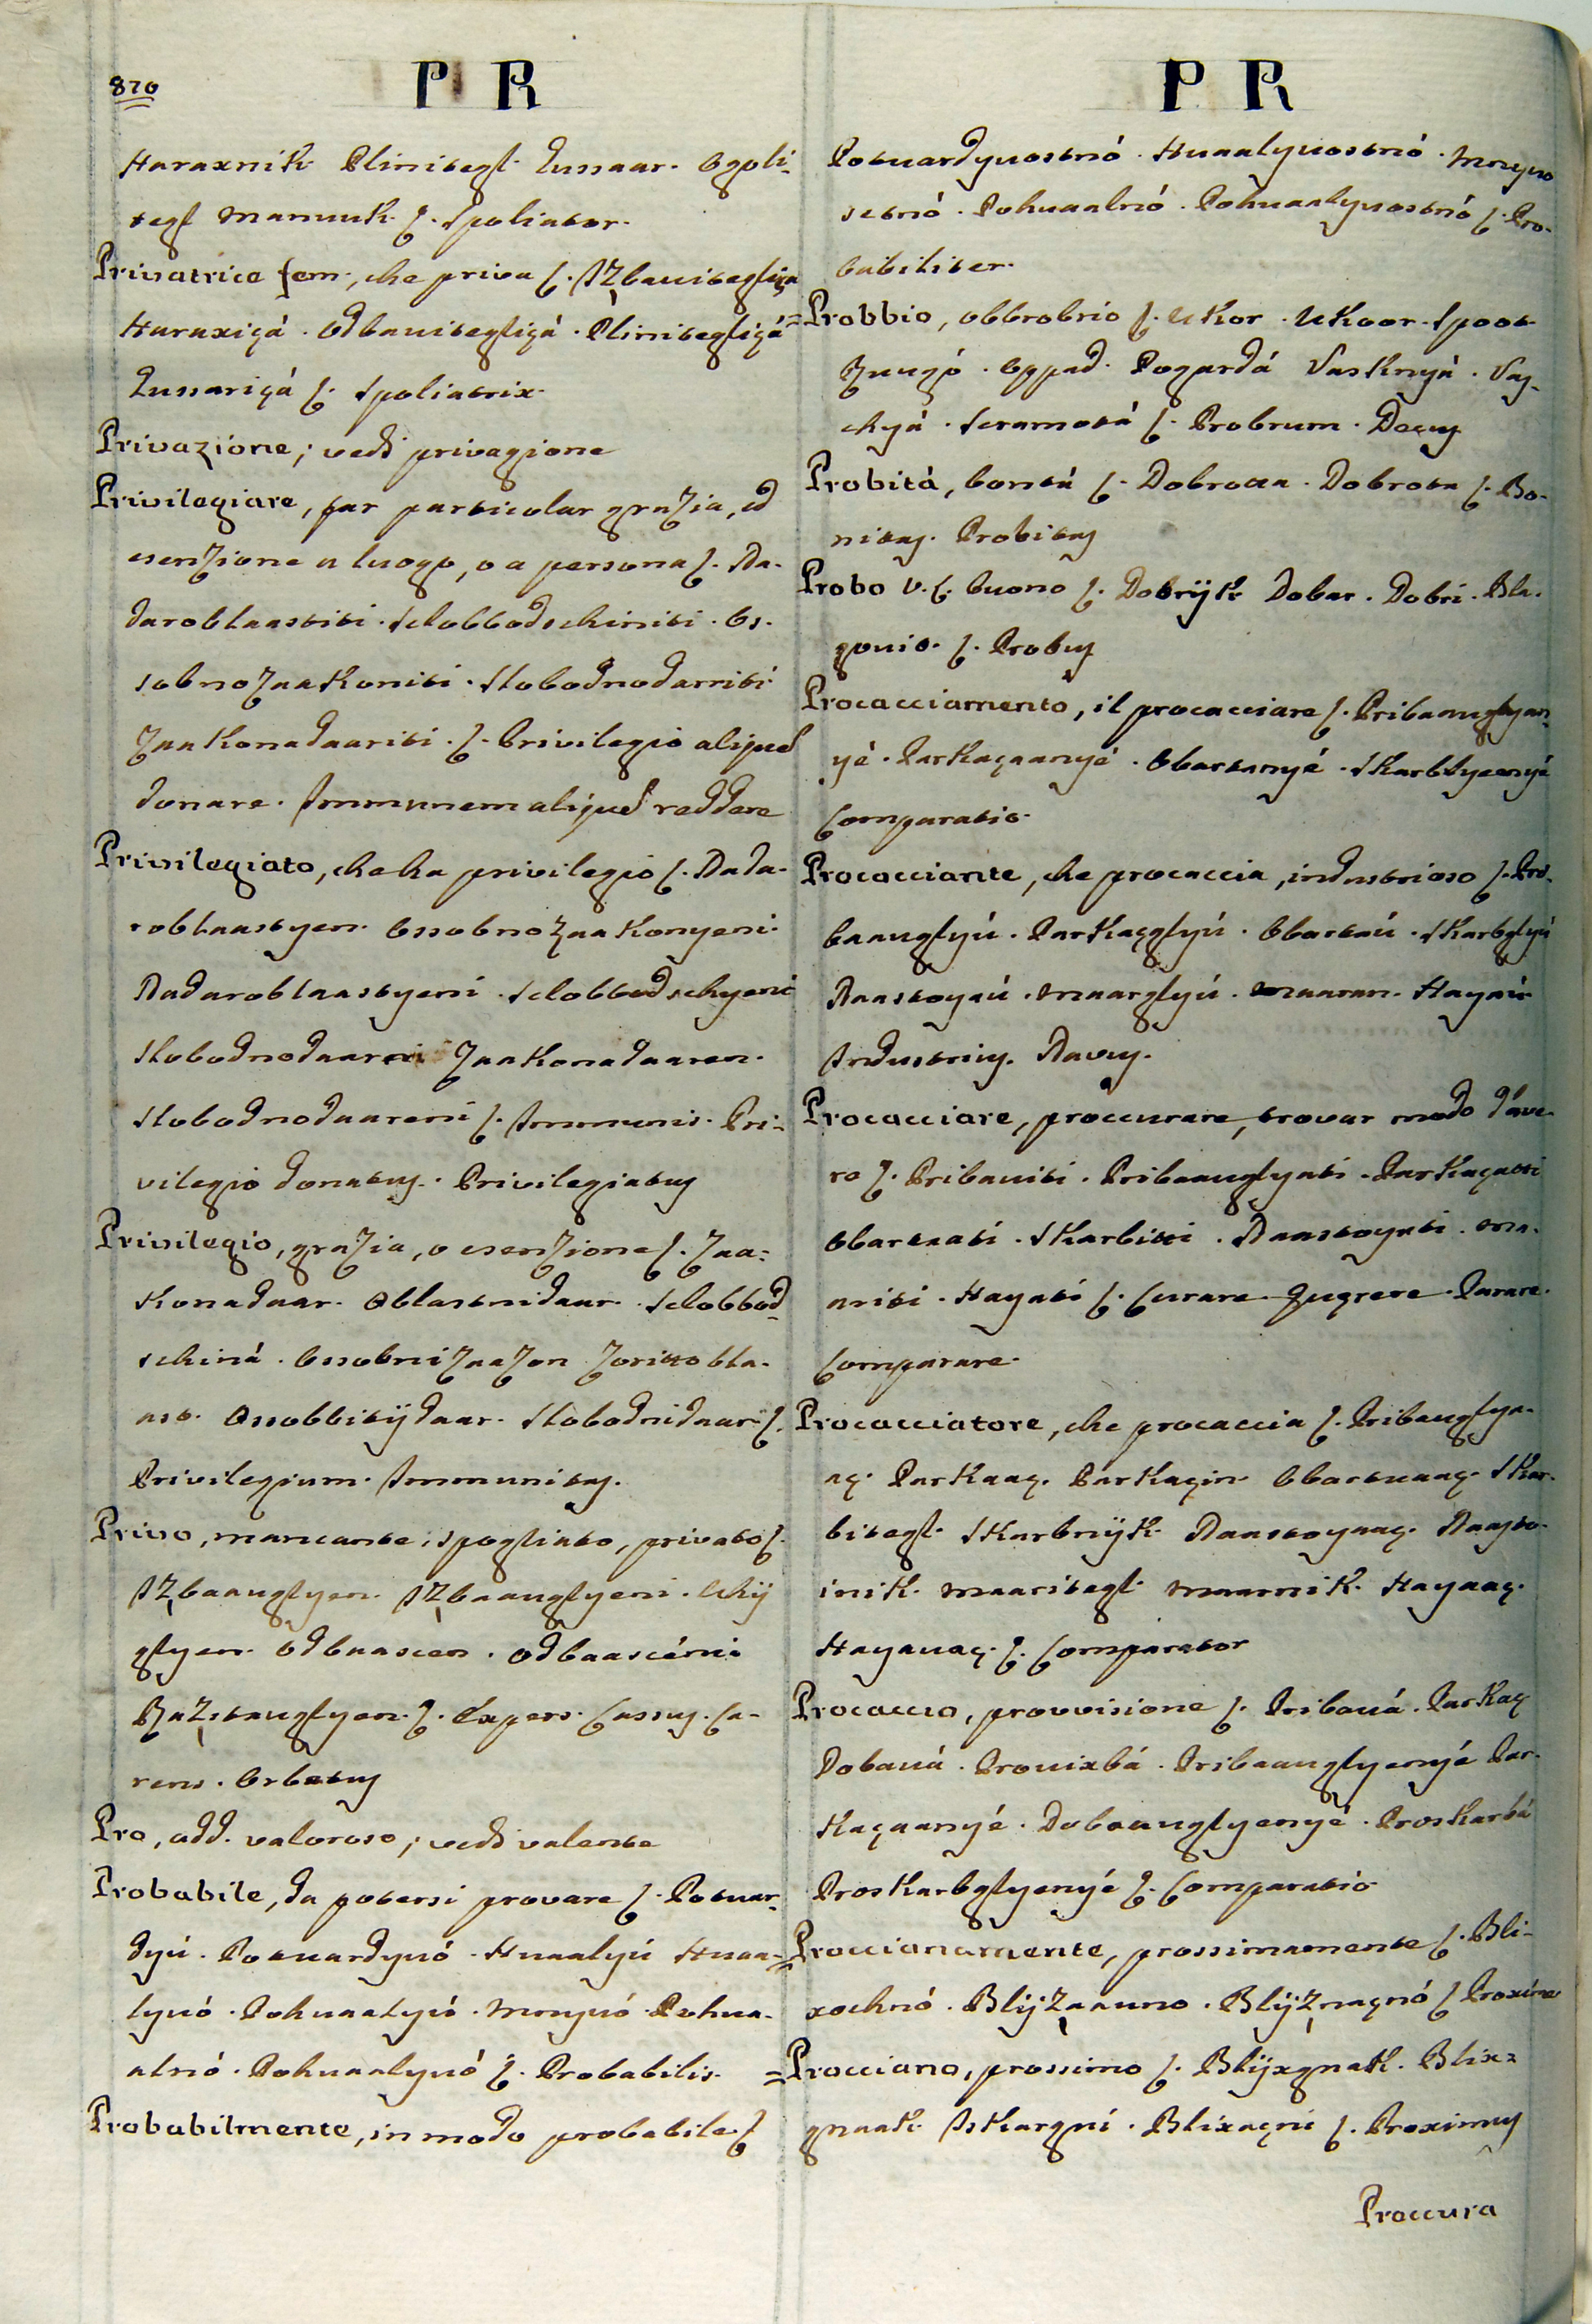 870
P R
Haraxnik Plinitegl Gussaar. Ogoli-
tegl Mamuuk ſ. Spoliator.
Privatrice fem., che priva ſ. Izbauitegliça
Haraxiçá. Odbauitegliçá. Plinitegliçá
Gussariçá ſ. Spoliatrix.
Privazione; vedi privagione
Privilegiare, far particolar grazia, ed
esenzione a luogo, o a persona ſ. Na-
daroblaastiti. Slobbodschiniti. Os-
sobnozaakoniti. Slobodnodarriti
Zaakonadaariti. ſ. Privilegio aliqued
donare. Immunem aliqued reddere
Privilegiato, che ha privilegio ſ. Nada-
roblaastyen. Ossobnozaakonyeni.
Nadaroblaastyeni. Slobbodschyeni
Slobodnodaareni Zaakonadaaren.
Slobodnodaareni ſ. Immunis. Pri-
vilegio donatus. Privilegiatus
Privilegio, grazia, o esenzione ſ. Zaa-
konadaar. Oblastnidaar. Slobbod-
schiná. Ossobnizaazon Zorittobla-
ast. Ossobbitijdaar. Slobodnidaar ſ.
Privilegium. Immunitas.
Privo, mancante, spogliato, privato ſ.
Izbaauglyen. Izbaauglyeni. Lhij
glyen. Odbaascen. Odbaascéni
Razstauglyen. ſ. Expers. Cassus. Ca-
rens. Orbatus
Pro, add. valoroso; vedi valente
Probabile, da potersi provare ſ. Potuar-
dyú. Potuardyuó. Huaalyú Huaa-
lyuó. Pohuaalyuó. Mnyuó. Pohua-
alnó. Pohuaalyuó ſ. Probabilis.
Probabilmente, in modo probabile ſ
P R
Potuardyuostnó. Huaalyuostnó. Mnyuo
stnó. Pohuaalnó. Pohuaalyuostnó ſ. Pro-
babiliter.
Probbio, obbrobrio ſ. Ukor. Ukoor. Spoot
Rugó. Oppad. Pogardá Vasknyá. Vas-
chyá. Scramotá ſ. Probrum. Decus
Probità, bontà ſ. Dobrocta. Dobrota ſ. Bo-
nitas. Probitas
Probo v. ſ. buono ſ. Dobrijk Dobar. Dobri. Bla-
gouit. ſ. Probus
Procacciamento, il procacciare ſ. Pribaauglyan-
yé. Parkaçaanyé. Obartanyé. Skarblyeenyé
Comparatio.
Procacciante, che procaccia, industrioso ſ. Pri-
baauglyú. Parkaçglyú. Obartaú. Skarbglyú
Naastoyaú. Maarglyú. Maaran. Hayaú
Industrius. Navus.
Procacciare, proccurare, trovar modo d'ave-
re ſ. Pribauiti. Pribaauglyati. Parkaçatti
Obartaati. Skarbitti. Naastoyati. Ma-
ariti. Hayati ſ. Curare. Quęrere. Parare.
Comparare.
Procacciatore, che procaccia ſ. Pribauglya-
aç. Parkaaç. Parkaçin. Obartuaaç. Skar-
bitegl. Skarbnijk. Naastoyaaç. Naasto-
inik. Maaritegl. Maarnik. Hayaaç.
Hayauaç. ſ. Comparator
Procaccio, provvisione ſ. Pribauá. Parkaç
Dobauá. Prouixbá. Pribaauglyenyé Par-
kaçaanyé. Dobaauglyenyé. Proskarbá
Proskarbglyenyé ſ. Comparatio
Proccianamente, prossimamente ſ. Bli-
xochnó. Blijzaauno. Blijznaçnó ſ Proxime
Procciano, prossimo ſ. Blijxgnak. Blix-
gnaak. Iskargni. Blixaçni ſ. Proximus
Proccura